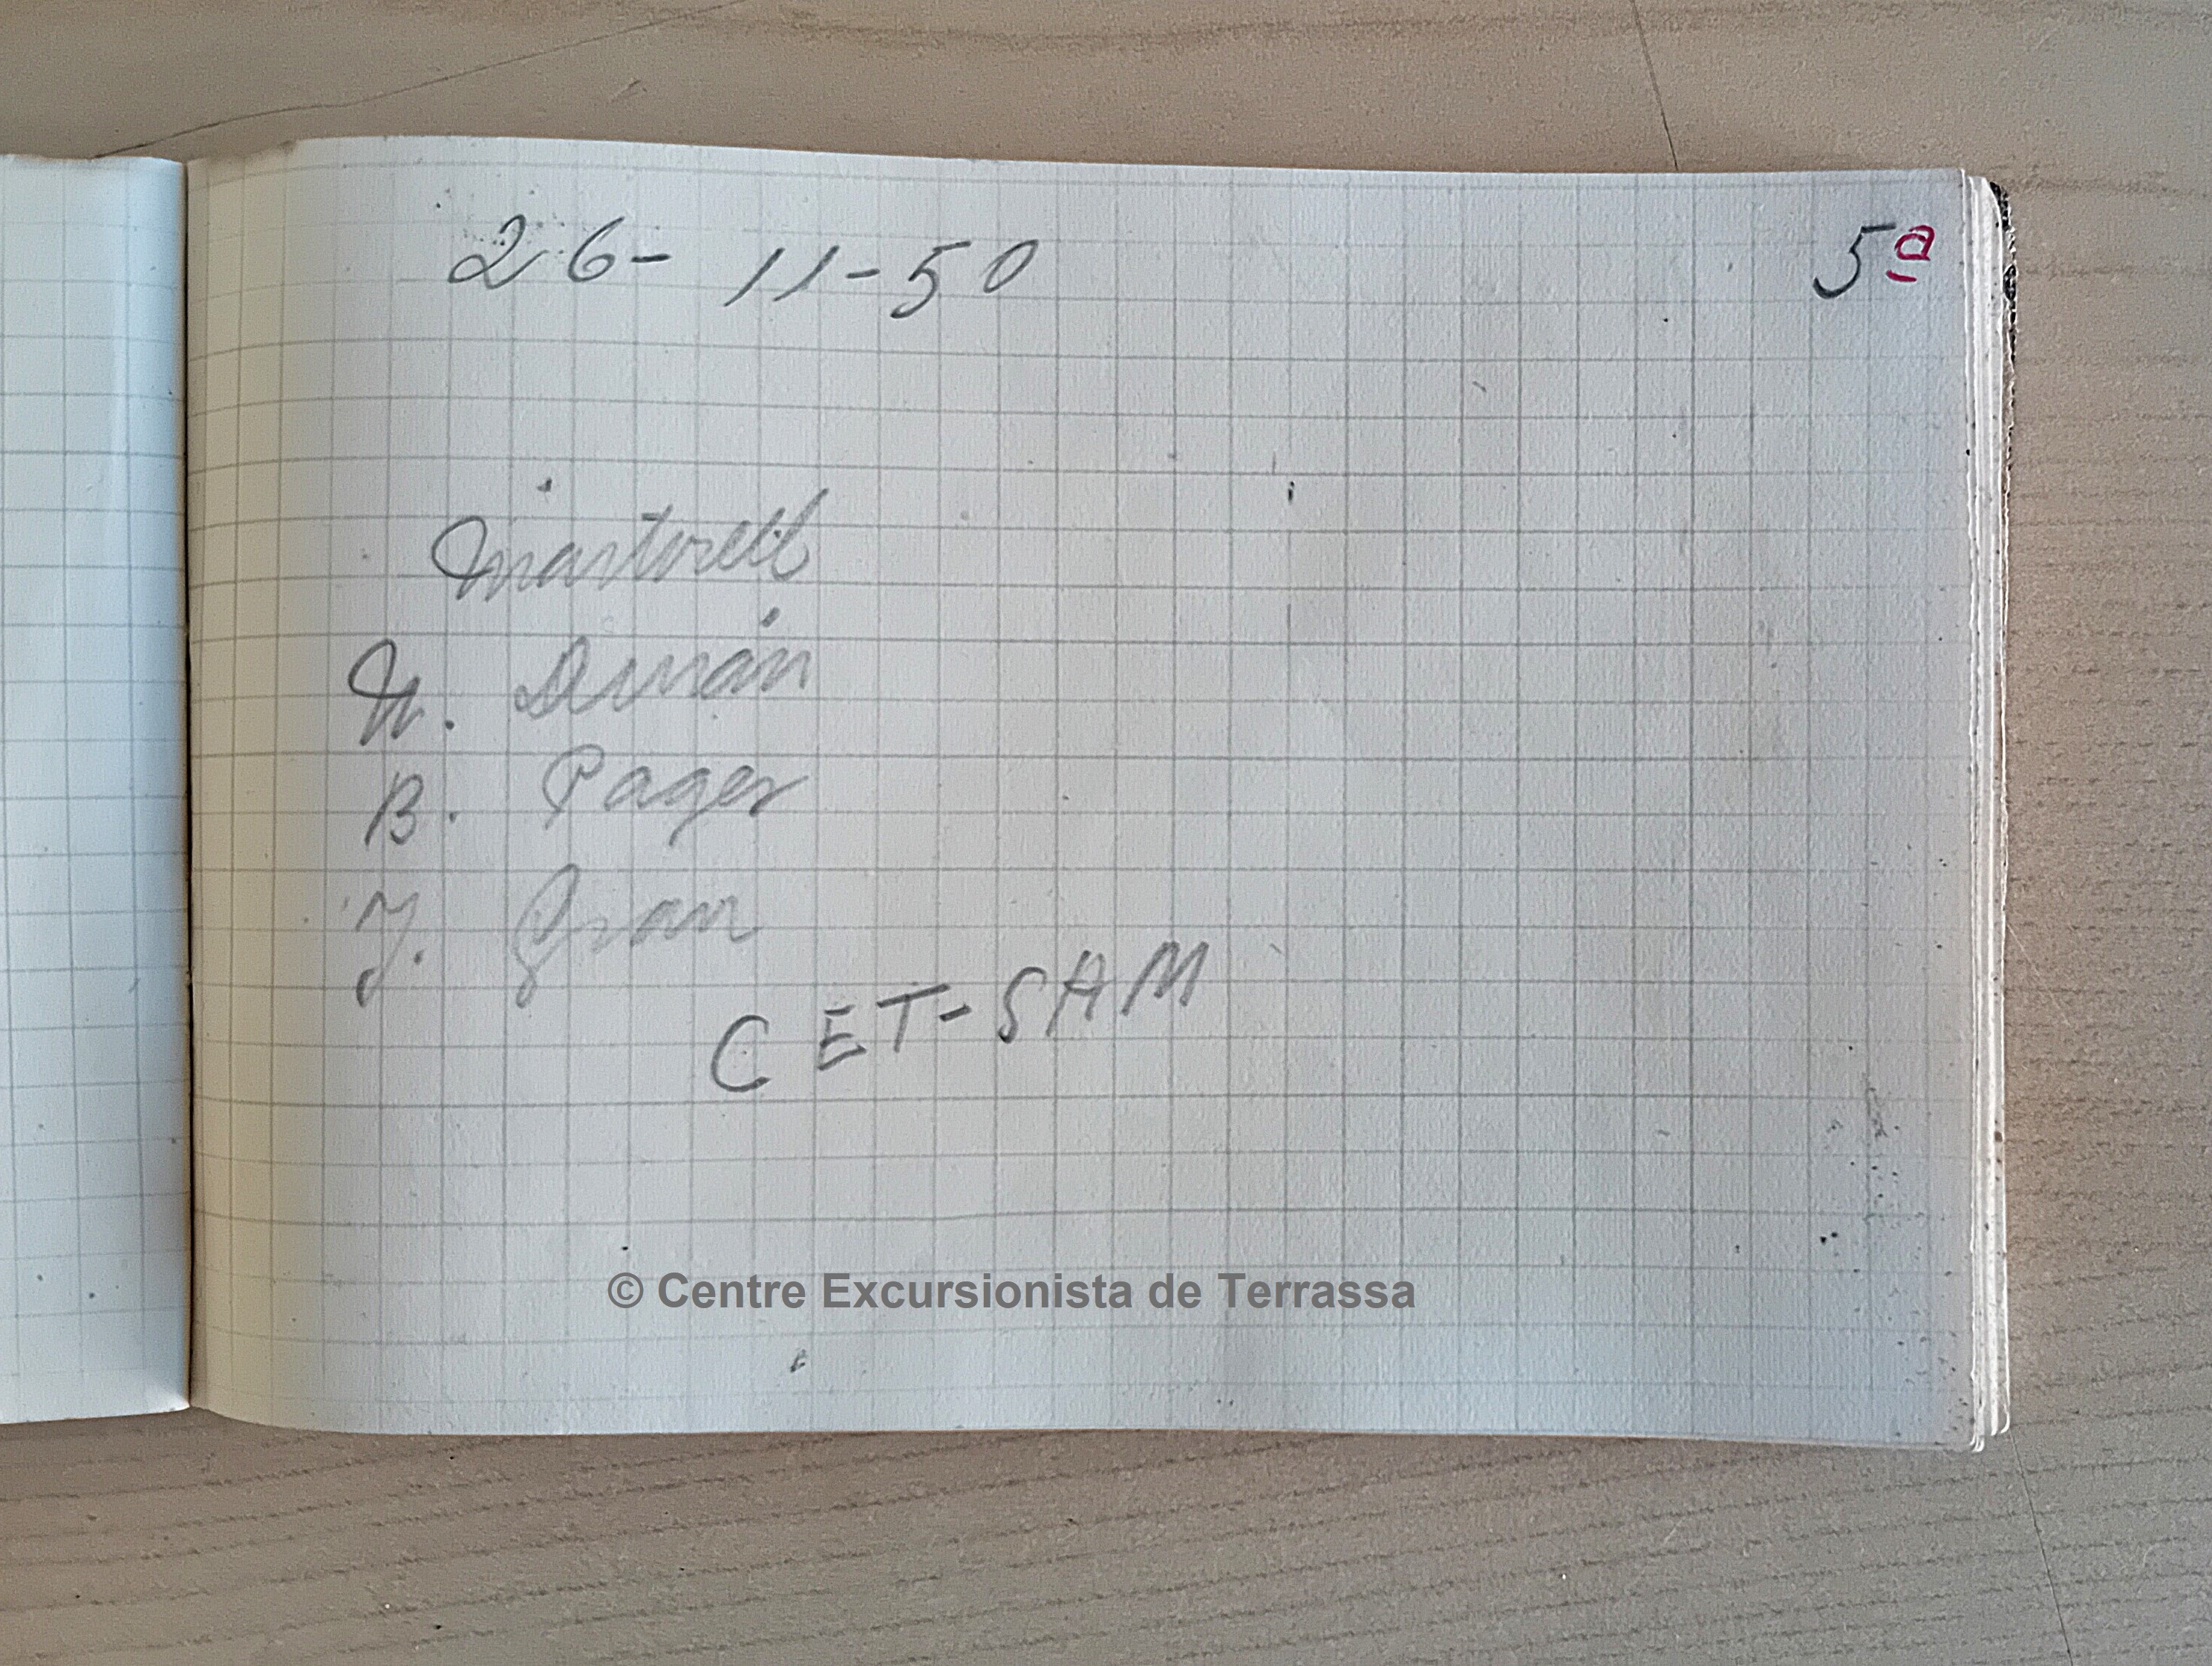 26-11-50 5ª
Martorell
B. Pages
J. Gran
CET-SAM
© Centre Excursionista de Terrassa